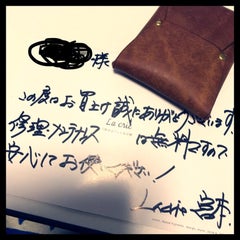 様
この度はお買上げ誠にありがとうございます。
La cuir
修理・メンテナンスは無料ですので
安心してお使い下さい！